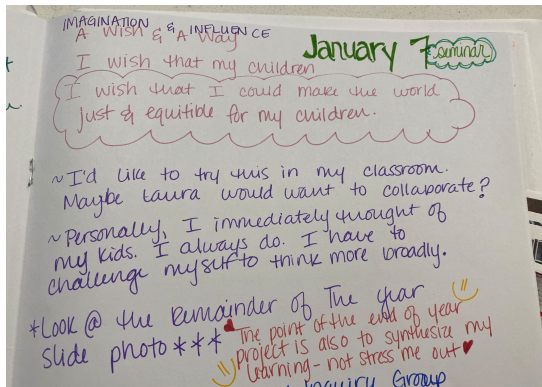 IMAGINATION & INFLUENCE
A Wish & A Way
January 7 seminar
I wish that my children
I wish that I could make the world
just & equitible for my children.
~I'd like to try this in my classroom.
Maybe Laura would want to collaborate?
~Personally, I immediately thought of
my kids. I always do. I have to
challenge myself to think more broadly.
*Look @ the Remainder of The year
slide photo***
The point of the end of year
project is also to synthesize my
learning - not stress me out
Inquiry Group